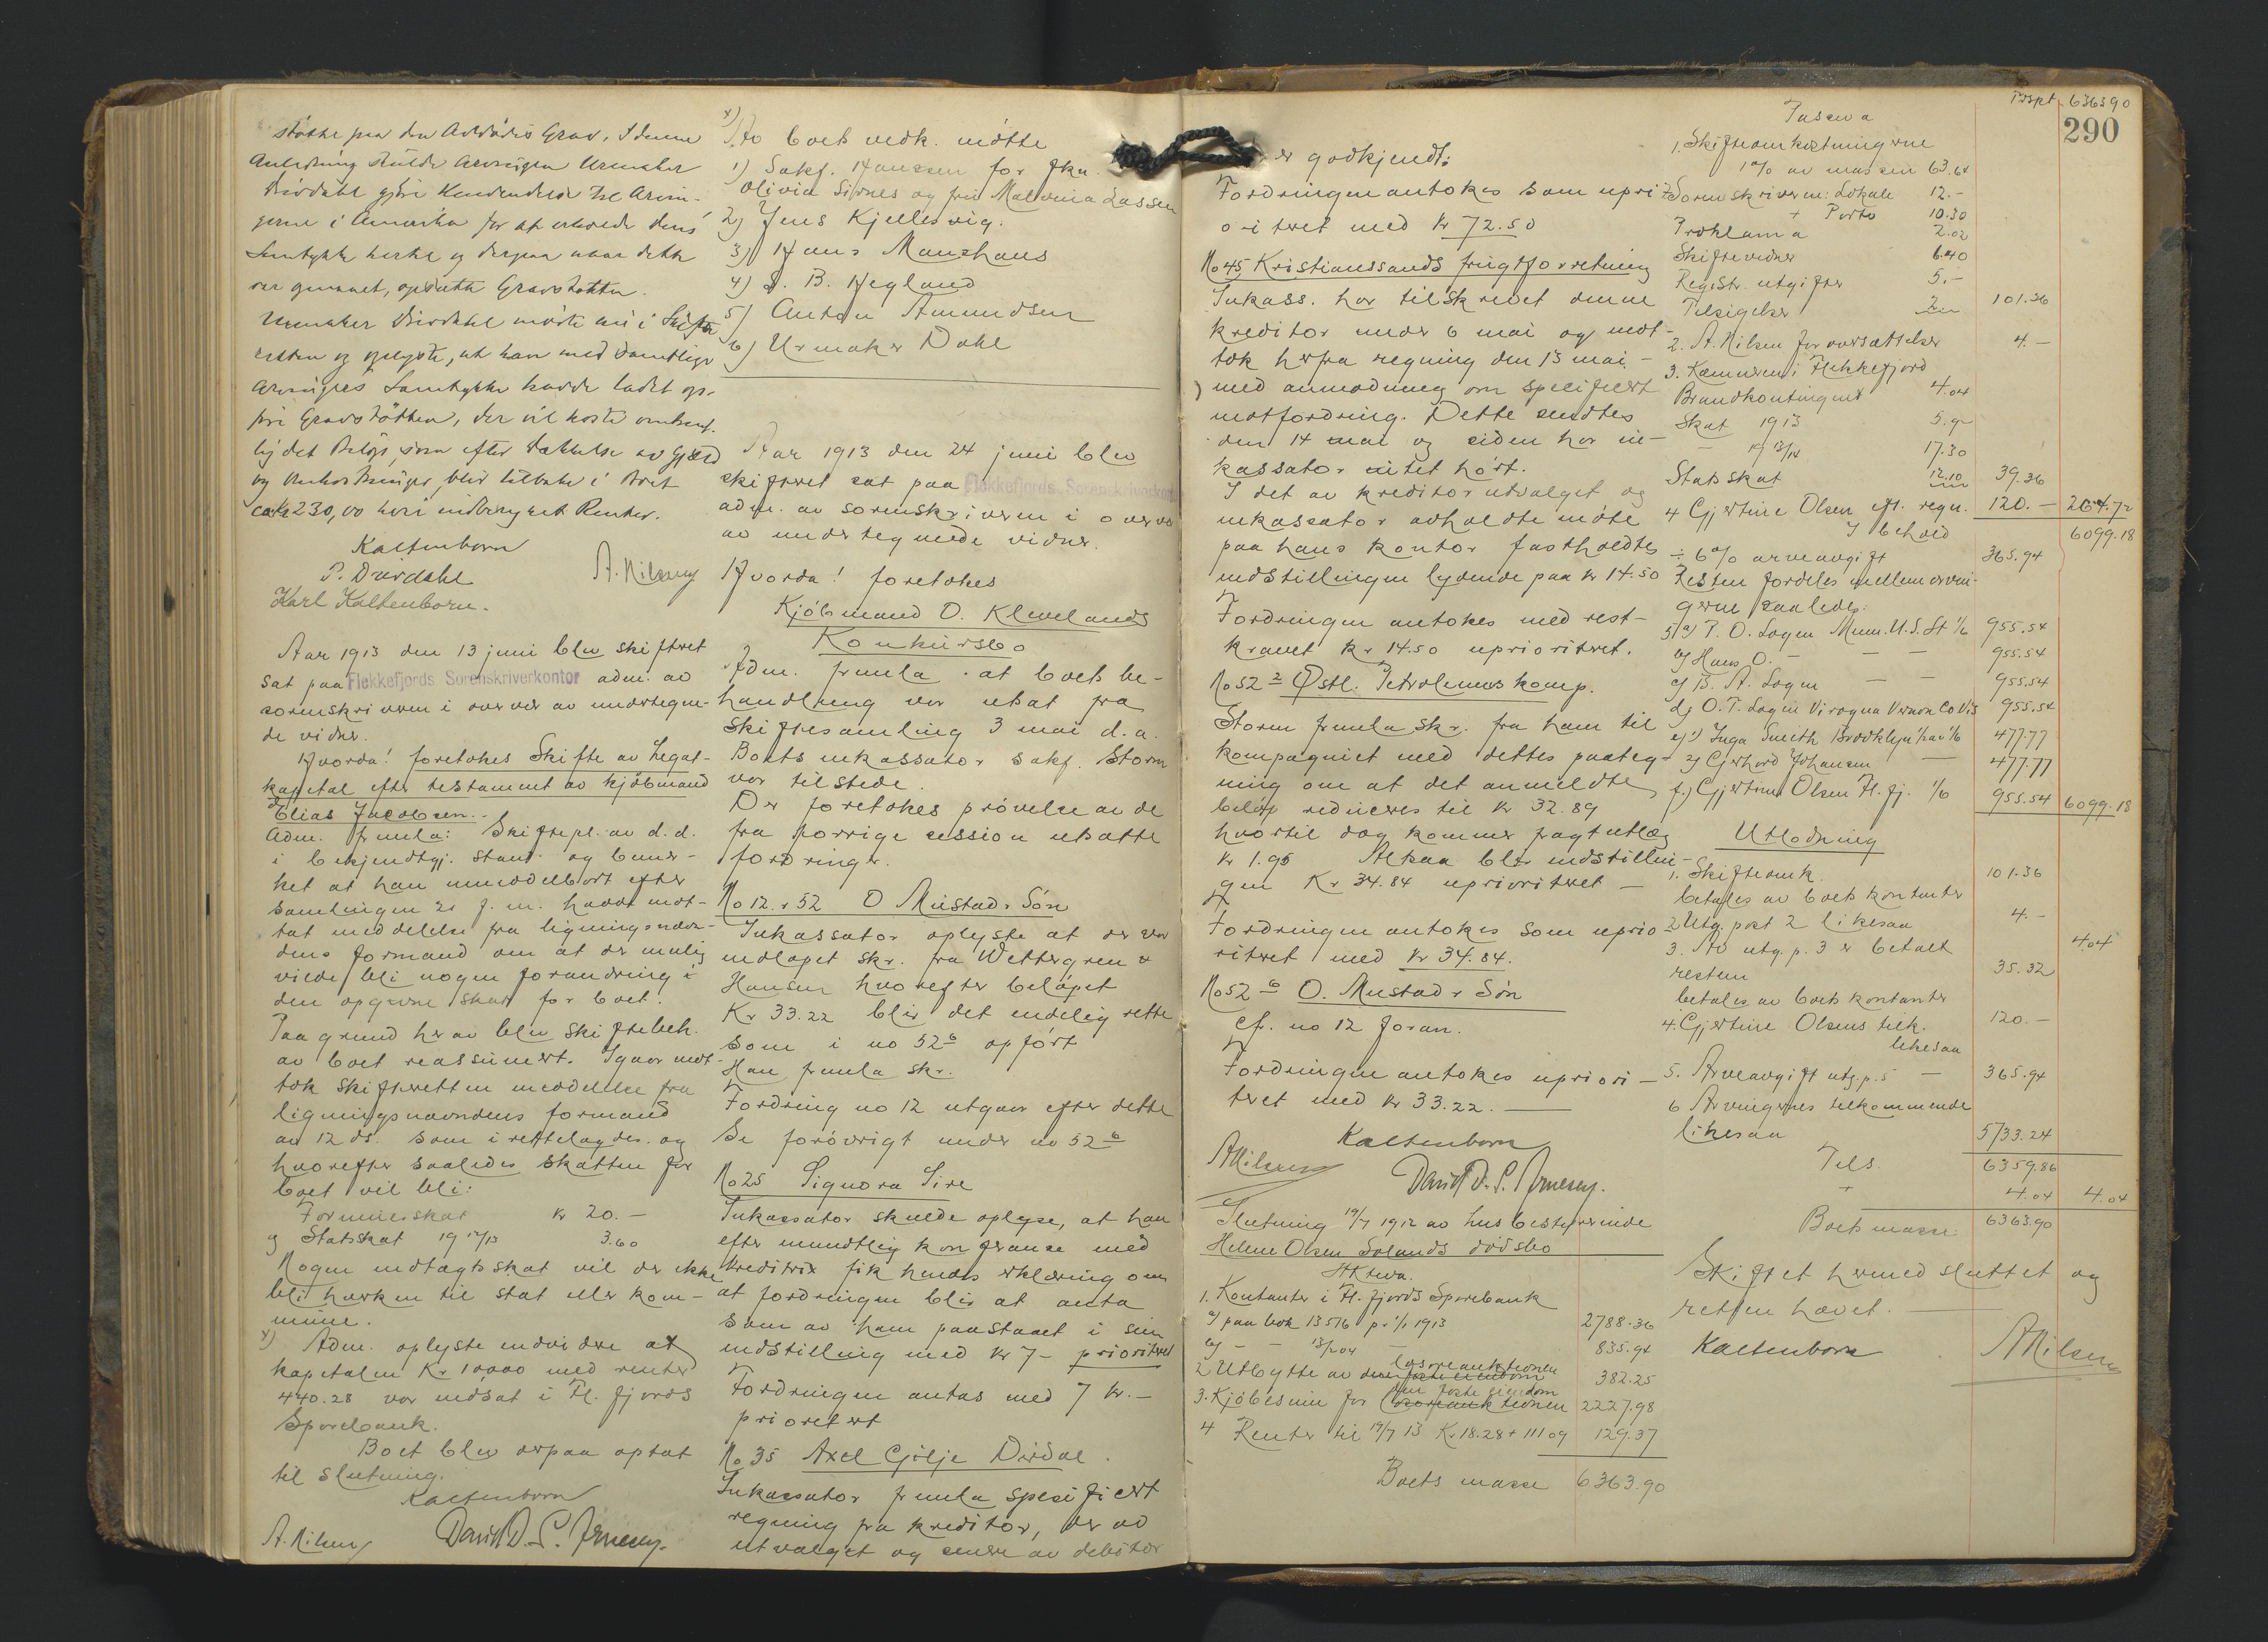 støtte paa den Avdødes Grav. I denne
Anledning skulde Arvingen Urmaker
Dirdahl gjøre Henvendelse til Arvin-
gerne i Amerika for at erhverve deres
Samtykke hertil og derpaa naar dette
var gunnet, opsætte Gravstøtten.
Urmaker Dirdahl mødte nu i Skifte
retten og oplyste, at han med samtlige
Arvingers Samtykke havde ladet op-
føre Gravstøtten, der vil koste omtrent-
lig det Beløp, som efter Dækkelse av Gjæld
og Omkostninger, blir tilbake i Boet
ca Kr 230,00 heri indberegnet Renter.
Kaltenborn
P. Dirdahl
A. Nilsen
Karl Kaltenborn.
Aar 1913 den 13 juni blev skifteret
sat paa Flekkefjords Sorenskriverkontor adm. av
sorenskriveren i overvær av undertegne-
de vidner.
Hvorda! foretokes Skifte av Legat-
kapital efter testament av kjøbmand
Elias Jacobsen.
Adm. fremla: Skiftepl. av d.d.
i bekjendtgj. stand og bemer-
ket at han umiddelbart efter
samlingen 21 f. m. hadde mot-
tat meddelelse fra ligningsnævn-
dens formand om at der mulig
vilde bli nogen forandring i
den opgivne skat for boet.
Paa grund herav blev skiftebeh.
av boet reassumert. Igaar mot-
tok skifteretten meddelelse fra
ligningsnævndens formand
av 12 ds. som i rettelagdes. og
hvorefter saaledes skatten for
boet vil bli:
Formueskat kr 20.-
og Statsskat 1912/13 3.60
Nogen indtægtsskat vil der ikke
bli hverken til stat eller kom-
mune.
x) Adm. oplyste endvidere at
kapitalen Kr 10000 med renter
440.28 var indsat i Fl. fjords
Sparebank.
Boet blev derpaa optat
til slutning.
Kaltenborn
A. Nilsen David D. S. Arnesen.
x) Av boets vedk. møtte
1) Sakf. Hanssen for fru
Olivia Sirnes og fru Malvina Lassen
2) Jens Kjellesvig.
3) Hans Maushaus
4) S. B. Hegland
5) Anton Amundsen
6) Urmaker Dahl
Aar 1913 den 24 juni blev
skifteret sat paa Flekkefjords Sorenskriverkontor
adm. av sorenskriveren i overvær
av undertegnede vidner.
Hvorda! foretokes
Kjøbmand O. Klevelands
Konkursbo
Adm. fremla at boets be-
handling var utsat fra
skiftesamling 3 mai d.a.
Boets inkassator sakf. Storm
var tilstede.
Der foretokes prøvelse av de
fra forrige session utsatte
fordringer.
No 12. & 52 O Mustad & Søn
Inkassator oplyste at der var
indløpet skr. fra Wettergren &
Hansen hvorefter beløpet
Kr 33.22 blir det endelig rette
som i no 52 6 opført
Han fremla skr.
Fordring no 12 utgaar efter dette
Se forøvrigt under no 52 6
No 25 Signora Sire
Inkassator skulde oplyse, at han
efter mundtlig konferanse med
kreditrix fik hendes erklæring om
at fordringen blir at anta
som av ham paastaaet i sin
indstilling med kr 7- prioritert
Fordringen antas med 7 kr.-
prioritert
No 35 Axel Gilje Dirdal.
Inkassator fremla spesifisert
regning fra kreditor, der av
utvalget og senere av debitor
er godkjendt:
Fordringen antokes som upri-
oritert med kr 72.50
No 45 Kristianssands frugtforretning
Inkass. har tilskrevet denne
kreditor under 6 mai og mot-
tok herfra regning den 13 mai -
med anmodning om specificert
motfordring. Dette sendtes
den 14 mai og siden har in-
kassator intet hørt.
I det av kreditorutvalget og
inkassator avholdte møte
paa hans kontor fastholdtes
indstillingen lydende paa kr 14.50
Fordringen antokes med rest-
kravet kr 14.50 uprioritert.
No 52 2 Østl. Petroleums komp.
Storm fremla skr. fra ham til
kompagniet med dettes paateg-
ning om at det anmeldte
beløp reduceres til kr 32.89
hvortil dog kommer fragtutlæg
kr 1.95 Altsaa blir indstillin-
gen Kr 34.84 uprioritert -
Fordringen antokes som uprio
ritert med kr 34.84.
No 52 6 O. Mustad & Søn
cf. no 12 foran.
Fordringen antokes upriori-
tert med kr 33.22.
Kaltenborn
A Nilsen David D. S. Arnesen.
Slutning 19/7 1912 av husbestyrerinde
Helene Olsen Solands dødsbo
Aktiva.
1. Kontanter i Fl. fjords Sparebank
a) paa bok 13516 pr 1/1 1913 2788.36
b) - - 13/204 - 835.94
2 Utbytte av den faste eiendom løsøreauktionen 382.25
3. Kjøbesum for løsøreauktionen den faste eiendom 2227.98
4 Renter til 19/7 13 Kr. 18.28 + 111 09 129.37
Boets masse 6363.90
Trspt 6363 90
290
Passiva
1. Skifteomkostningerne
1% av massen 63.64
Sorenskriveren: Lokale 12.-
+ Porto 10.30
Proklama 2.02
Skiftevidner 6.40
Registr. utgifter 5.-
Tilsigelser 2.- 101.36
2. A. Nilsen for oversættelse 4.-
3. Kæmneren i Flekkefjord
Brandkontingent 4.04
Skat 1913 5.92
- 1913/14 17.30
Statsskat 12.10 39.36
4 Gjertine Olsen eft. regn. 120.- 264.72
I behold 6099.18
÷ 6% arveavgift 365.94
Resten fordeles mellem arvin-
gerne saaledes:
5/ a) P. O. Logen Mun. U.S. St 1/6 955.54
b) Hans O. - - - 955.54
c) B. A. Logen - - 955.54
d) O. T. Logen Viroqua Vernon Co Vis 955.54
e) 1) Inga Smith Brooklyn 1/2 av 1/6 477.77
2) Gjerhard Johansen - 477.77
f.) Gjertine Olsen Fl. fj. 1/6 955.54 6099.18
Utlodning
1. Skifteomk. 101.36
betales av boets kontanter
2 Utg. post 2 likesaa 4.-
3. Av utg. p. 3 er betalt 4.04
resten 35.32
betales av boets kontanter
4. Gjertine Olsens tilk. 120.-
likesaa
5. Arveavgift utg. p. 5 - 365.94
6 Arvingernes tilkommende
likesaa 5733.24
Tils. 6359.86
+ 4.04 4.04
Boets masse: 6363.90
Skiftet hermed sluttet og
retten hævet.
Kaltenborn A Nilsen